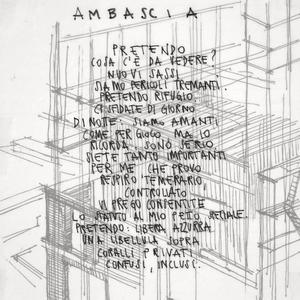 AMBASCIA
PRETENDO
COSA C'È DA VEDERE?
NUOVI SASSI
SIAMO PERICOLI TREMANTI.
PRETENDO RIFUGIO.
CRISIFATE DI GIORNO
DI NOTTE: SIAMO AMANTI
COME PER GIOCO MA IO
RICORDA, SONO SERIO,
SIETE TANTO IMPORTANTI
PER ME CHE PROVO
RESPIRO TEMERARIO,
CONTROLLATO,
VI PREGO CONSENTITE
LO SPUTO AL MIO PETTO
PRETENDO: LIBERA AZZURRA
UNA LIBELLULA SOPRA
CORALLI PRIVATI
CONFUSI, INCLUSI.